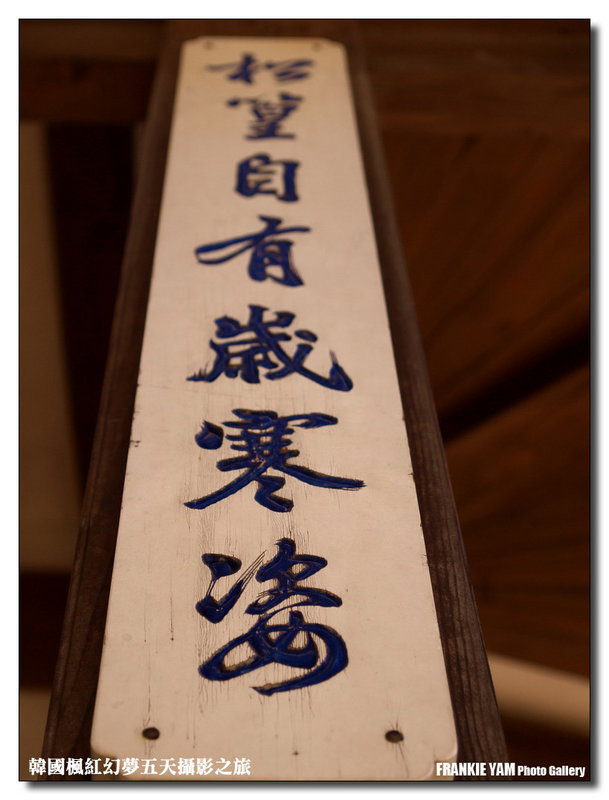 松篁自有歲寒姿
韓國楓紅幻夢五天攝影之旅
FRANKIE YAM Photo Gallery